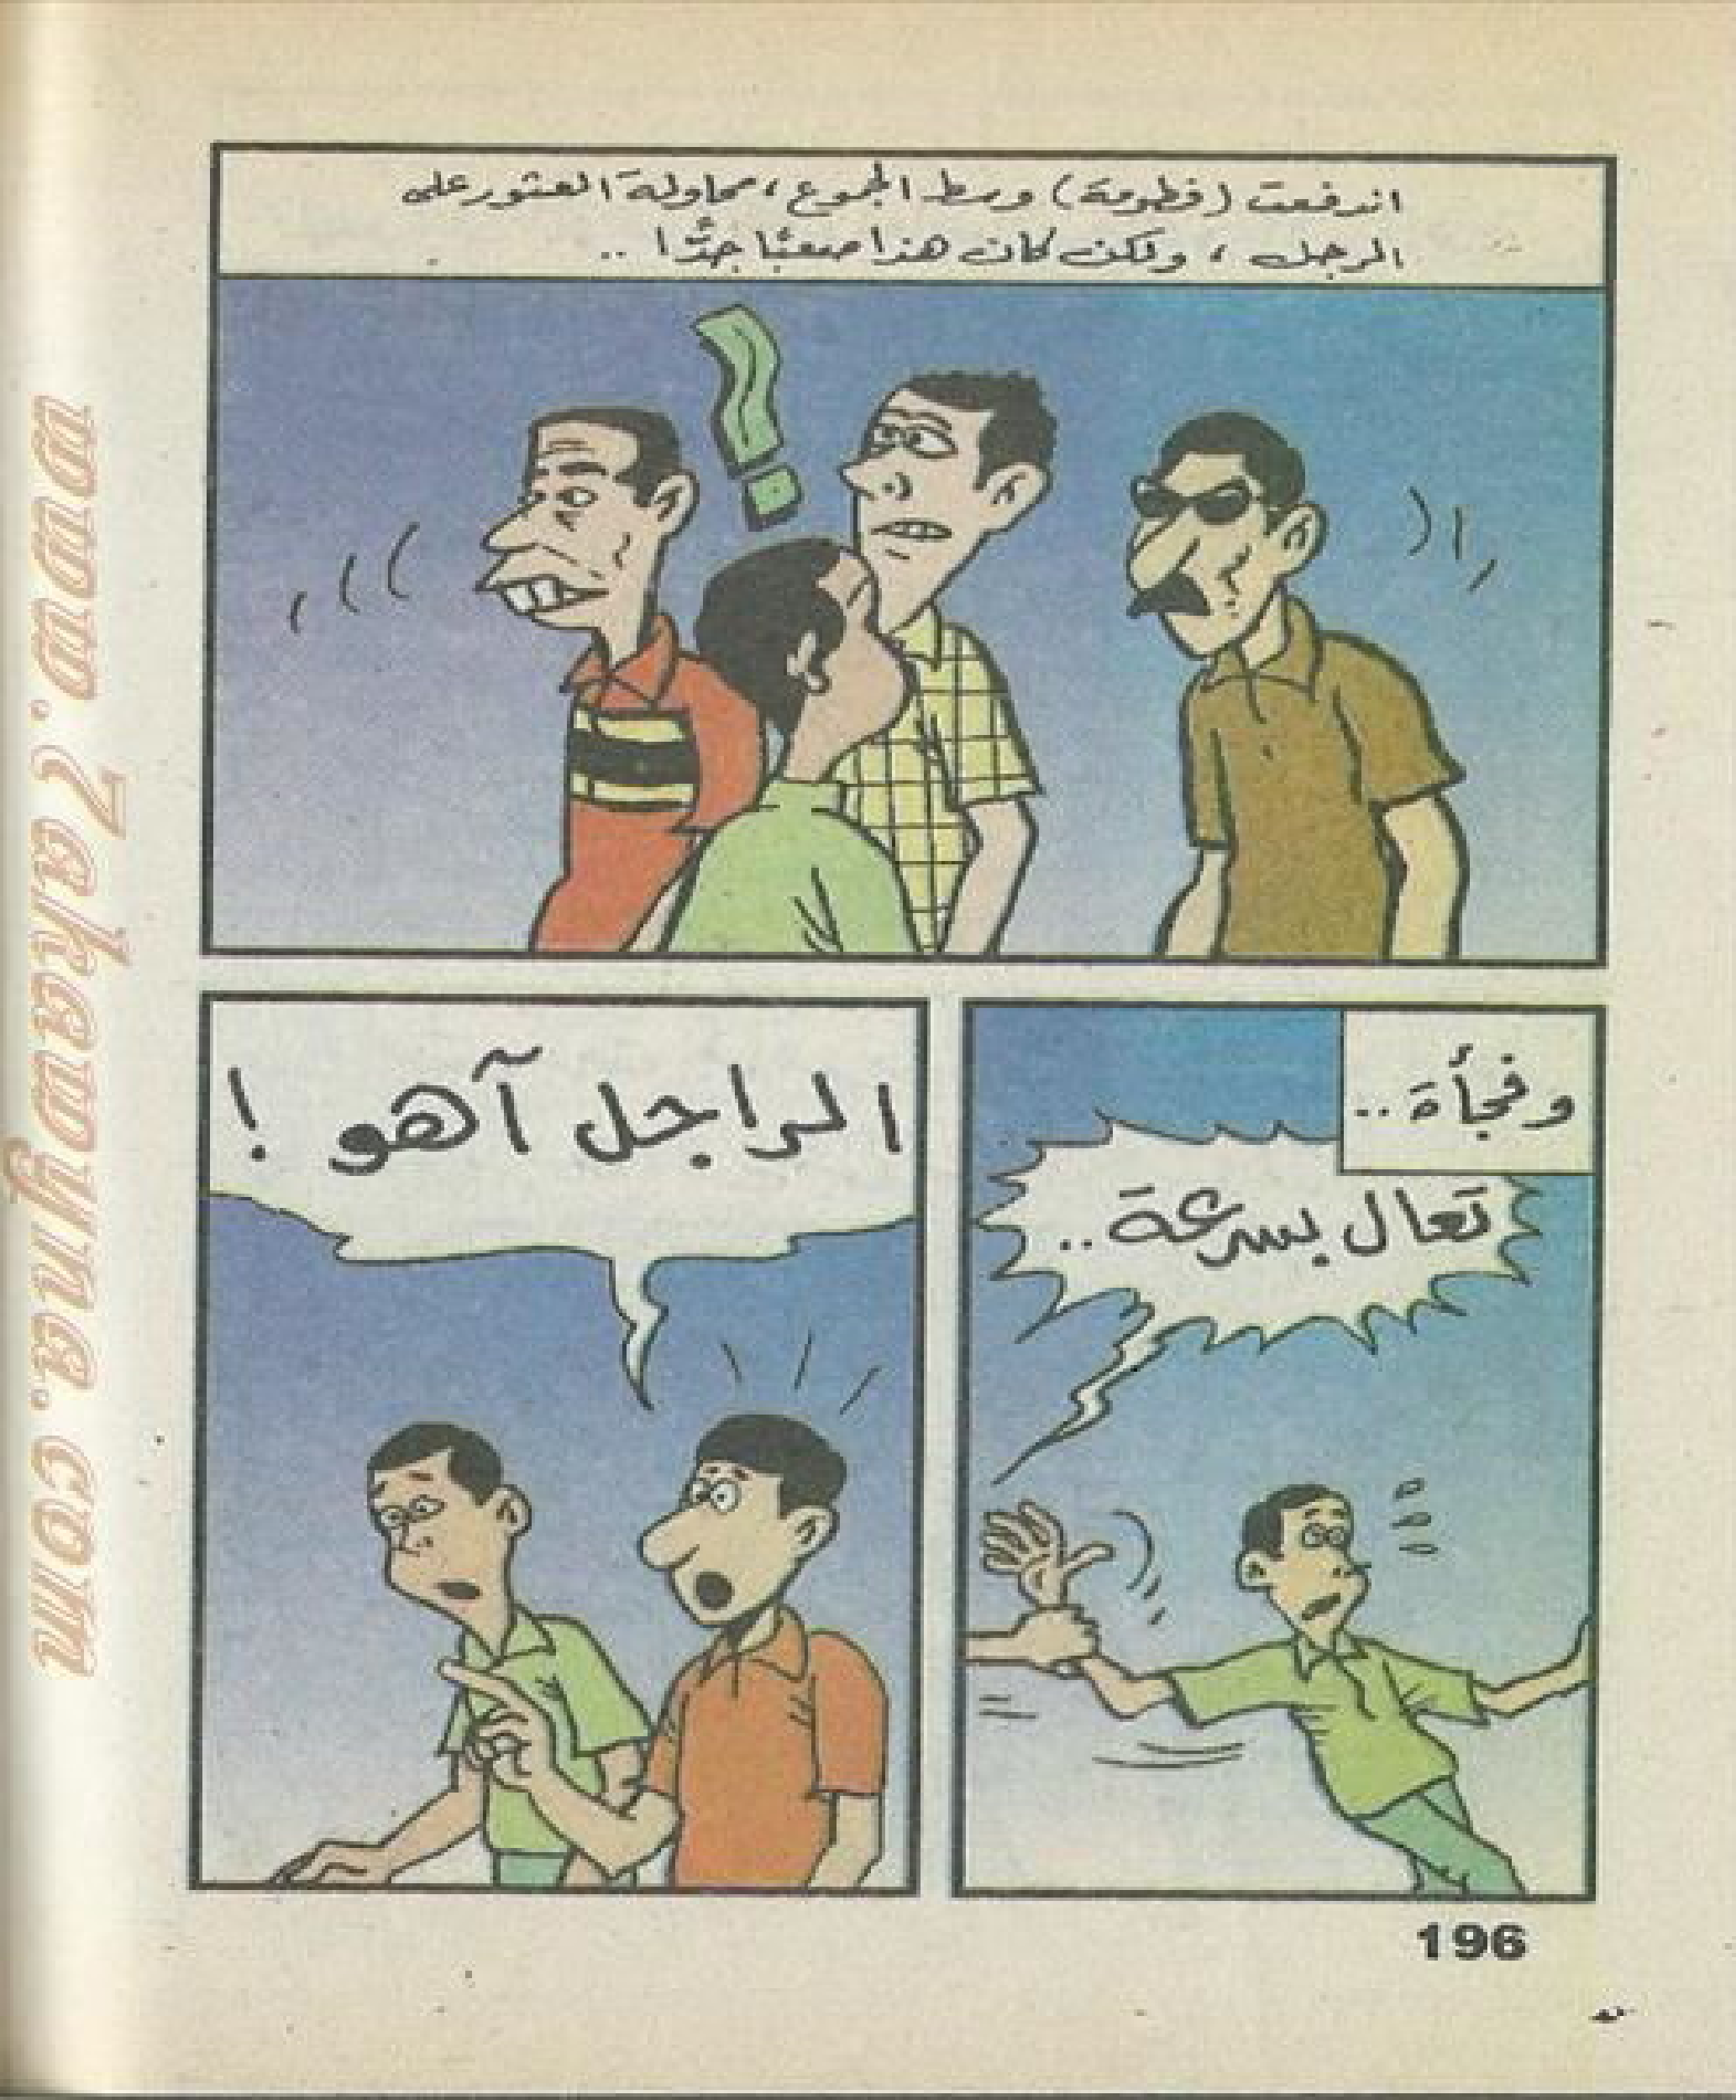 اندفعت (فطومة) وسط الجموع، محاولةً العثور على
الرجل، ولكن كان هذا صعبًا جدًّا ..
وفجأة ..
تعال بسرعة ..
الراجل آهو !
196
www.7akawyna.com